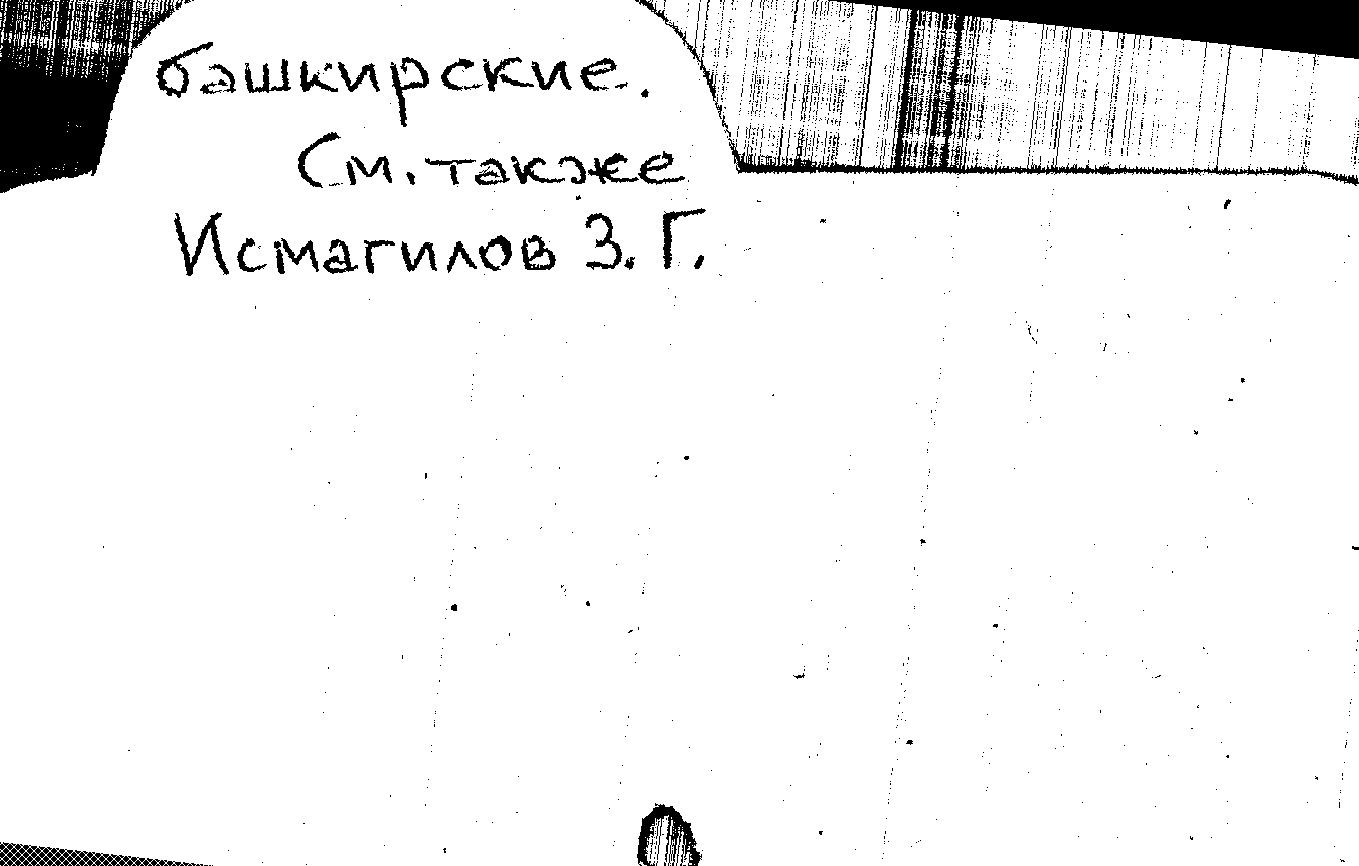 башкирские.
См. также
Исмагилов З. Г.